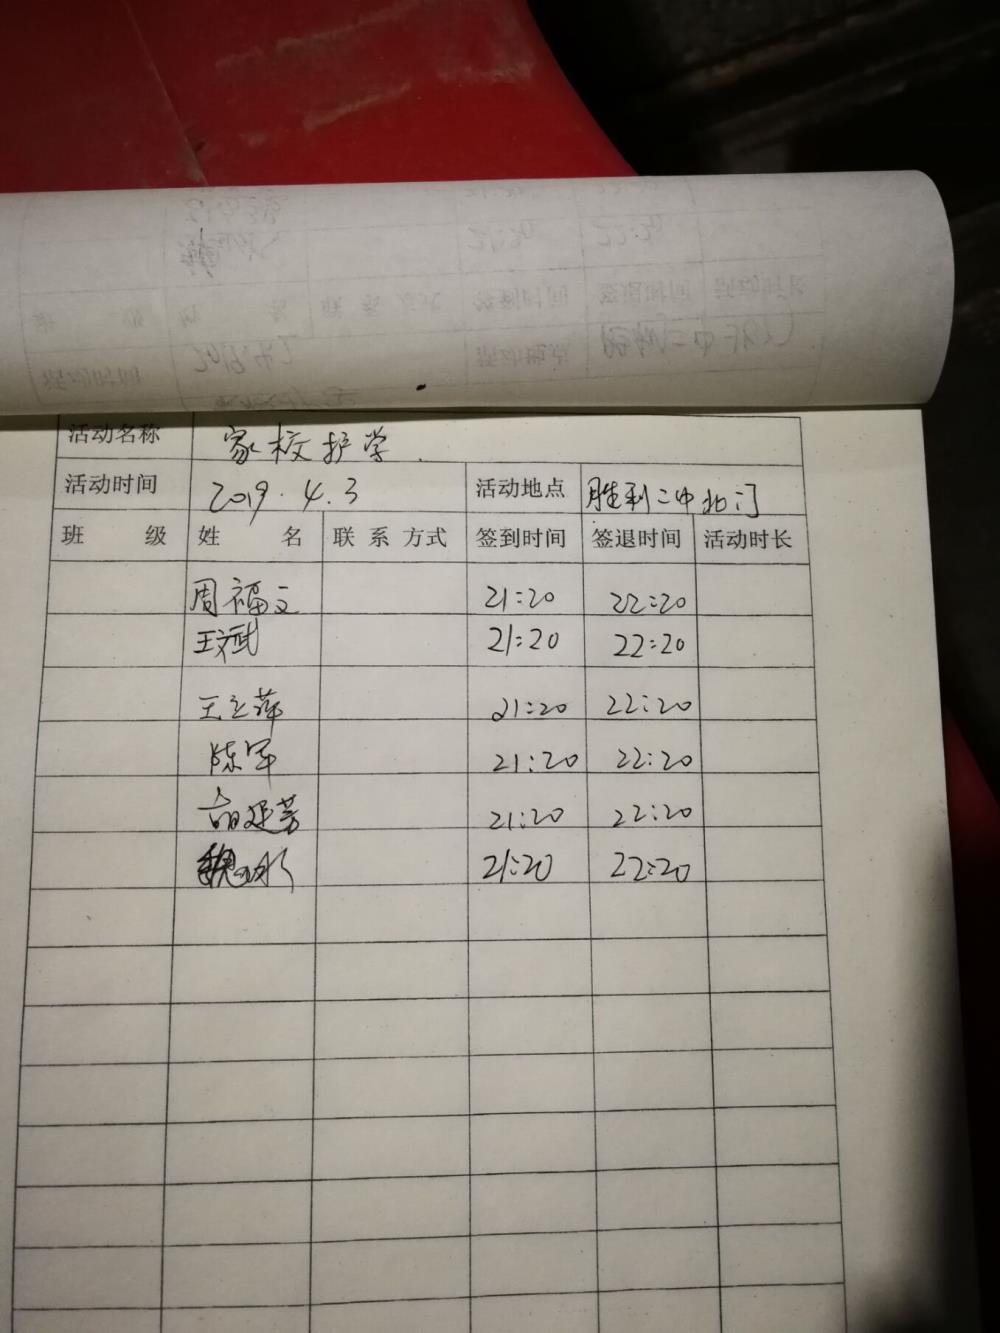 活动名称 家校护学.
活动时间 2019.4.3 活动地点 胜利二中北门
班 级 姓 名 联 系 方式 签到时间 签退时间 活动时长
周福文 21:20 22:20
王斌 21:20 22:20
王立萍 21:20 22:20
陈军 21:20 22:20
胡延芳 21:20 22:20
21:20 22:20